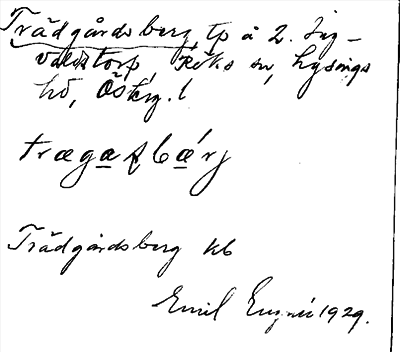 Trädgårdsberg tp å 2. Ing-
valdstorp, Röks sn, Lysings
hd, Österg. l
trægaʂbærj
Trädgårdsberg kb
Emil 1929.